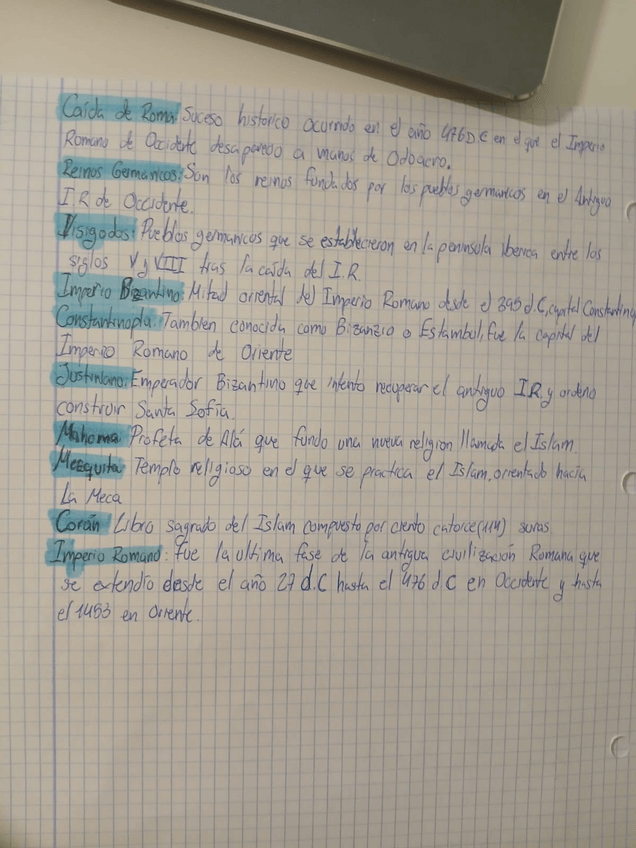 Caída de Roma: Suceso historico ocurrido en el año 476D.C en el que el Imperio
Romano de Occidente desaparedo a manos de Odoacro.
Reinos Germanicos: Son los reinos fundados por los pueblos germanicos en el Antiguo
I R de Occidente.
Visigodos: Pueblos germanicos que se establecieron en la peninsula iberica entre los
siglos V y VIII tras la caída del I.R.
Imperio Bizantino: Mitad oriental del Imperio Romano desde el 395 d.C, capital Constantinop
Constantinopla: Tambien conocida como Bizanzio o Estambul, fue la capital del
Imperio Romano de Oriente
Justiniano: Emperador Bizantino que intento recuperar el antiguo I.R y ordeno
construir Santa Sofía.
Mahoma: Profeta de Alá que fundo una nueva religion llamada el Islam.
Mezquita: Templo religioso en el que se practica el Islam, orientado hacia
La Meca
Corán: Libro sagrado del Islam compuesto por ciento catorce (114) suras
Imperio Romano: fue la ultima fase de la antigua civilización Romana que
se extendio desde el año 27 d.C hasta el 476 d.C en Occidente y hasta
el 1453 en Oriente.